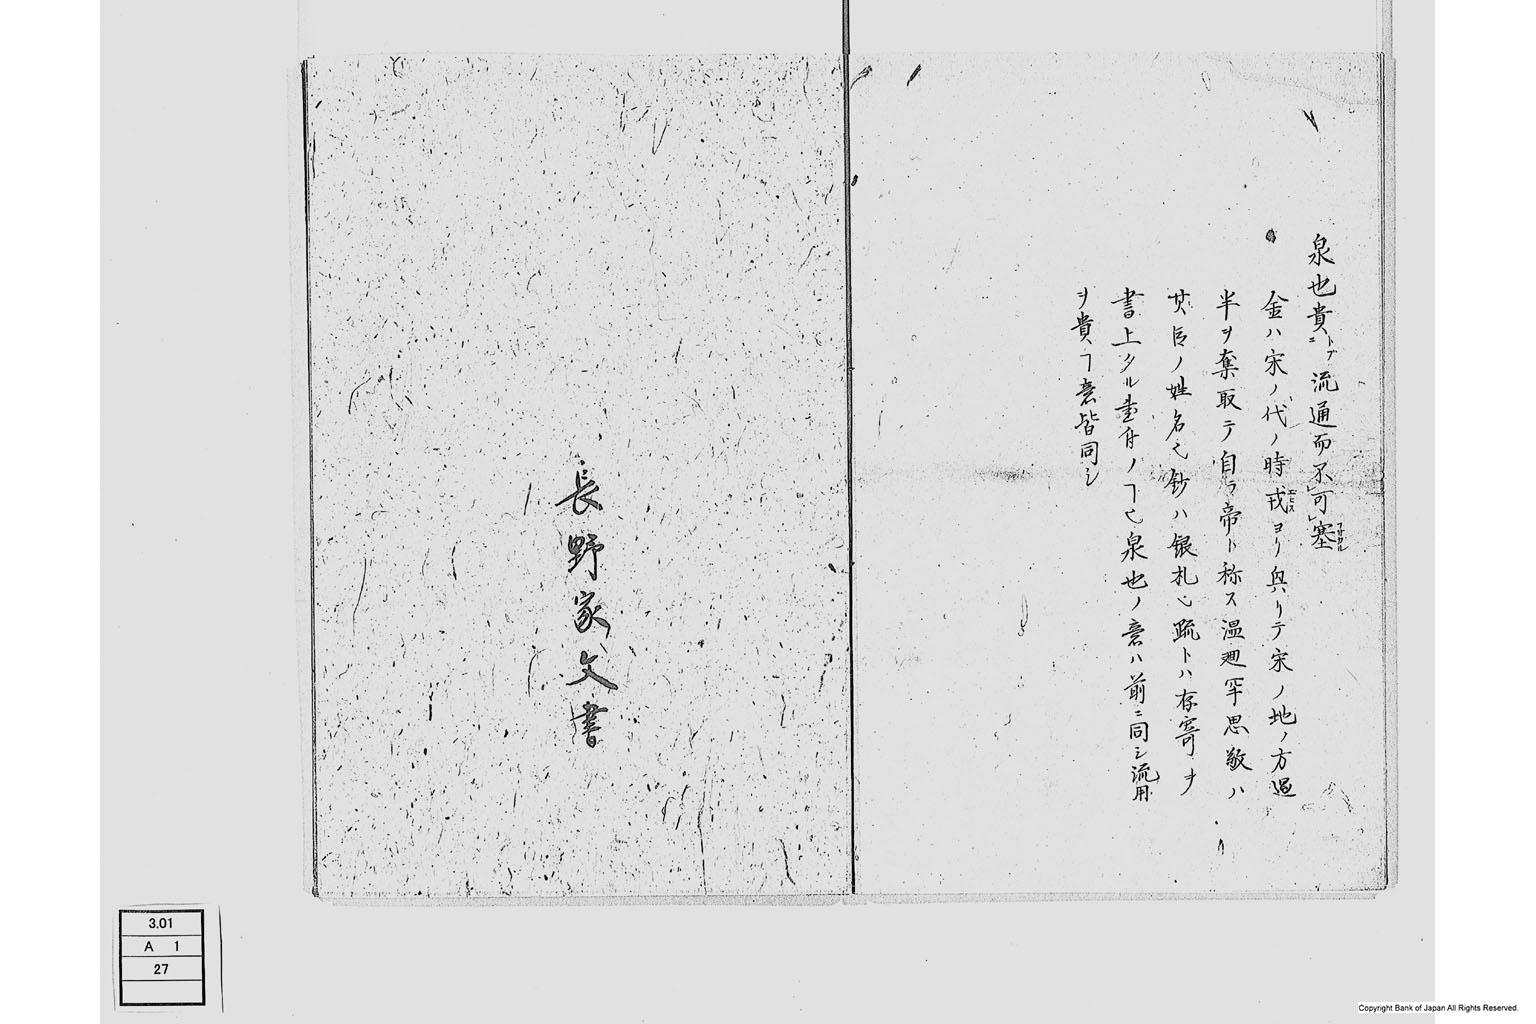 泉也貴ニトブ流通而不可塞フサガル
金ハ宋ノ代ノ時戎エビスヨリ興リテ宋ノ地ノ方過
半ヲ奪取テ自ラ帝ト称ス温廸罕思敬ハ
其臣ノ姓名也鈔ハ銀札也疏トハ存寄ヲ
書上タル書付ノヿ也泉也ノ意ハ前ニ同シ流用
ヲ貴フ意皆同シ
長野家文書
3.01
A 1
27
Copyright Bank of Japan All Rights Reserved.